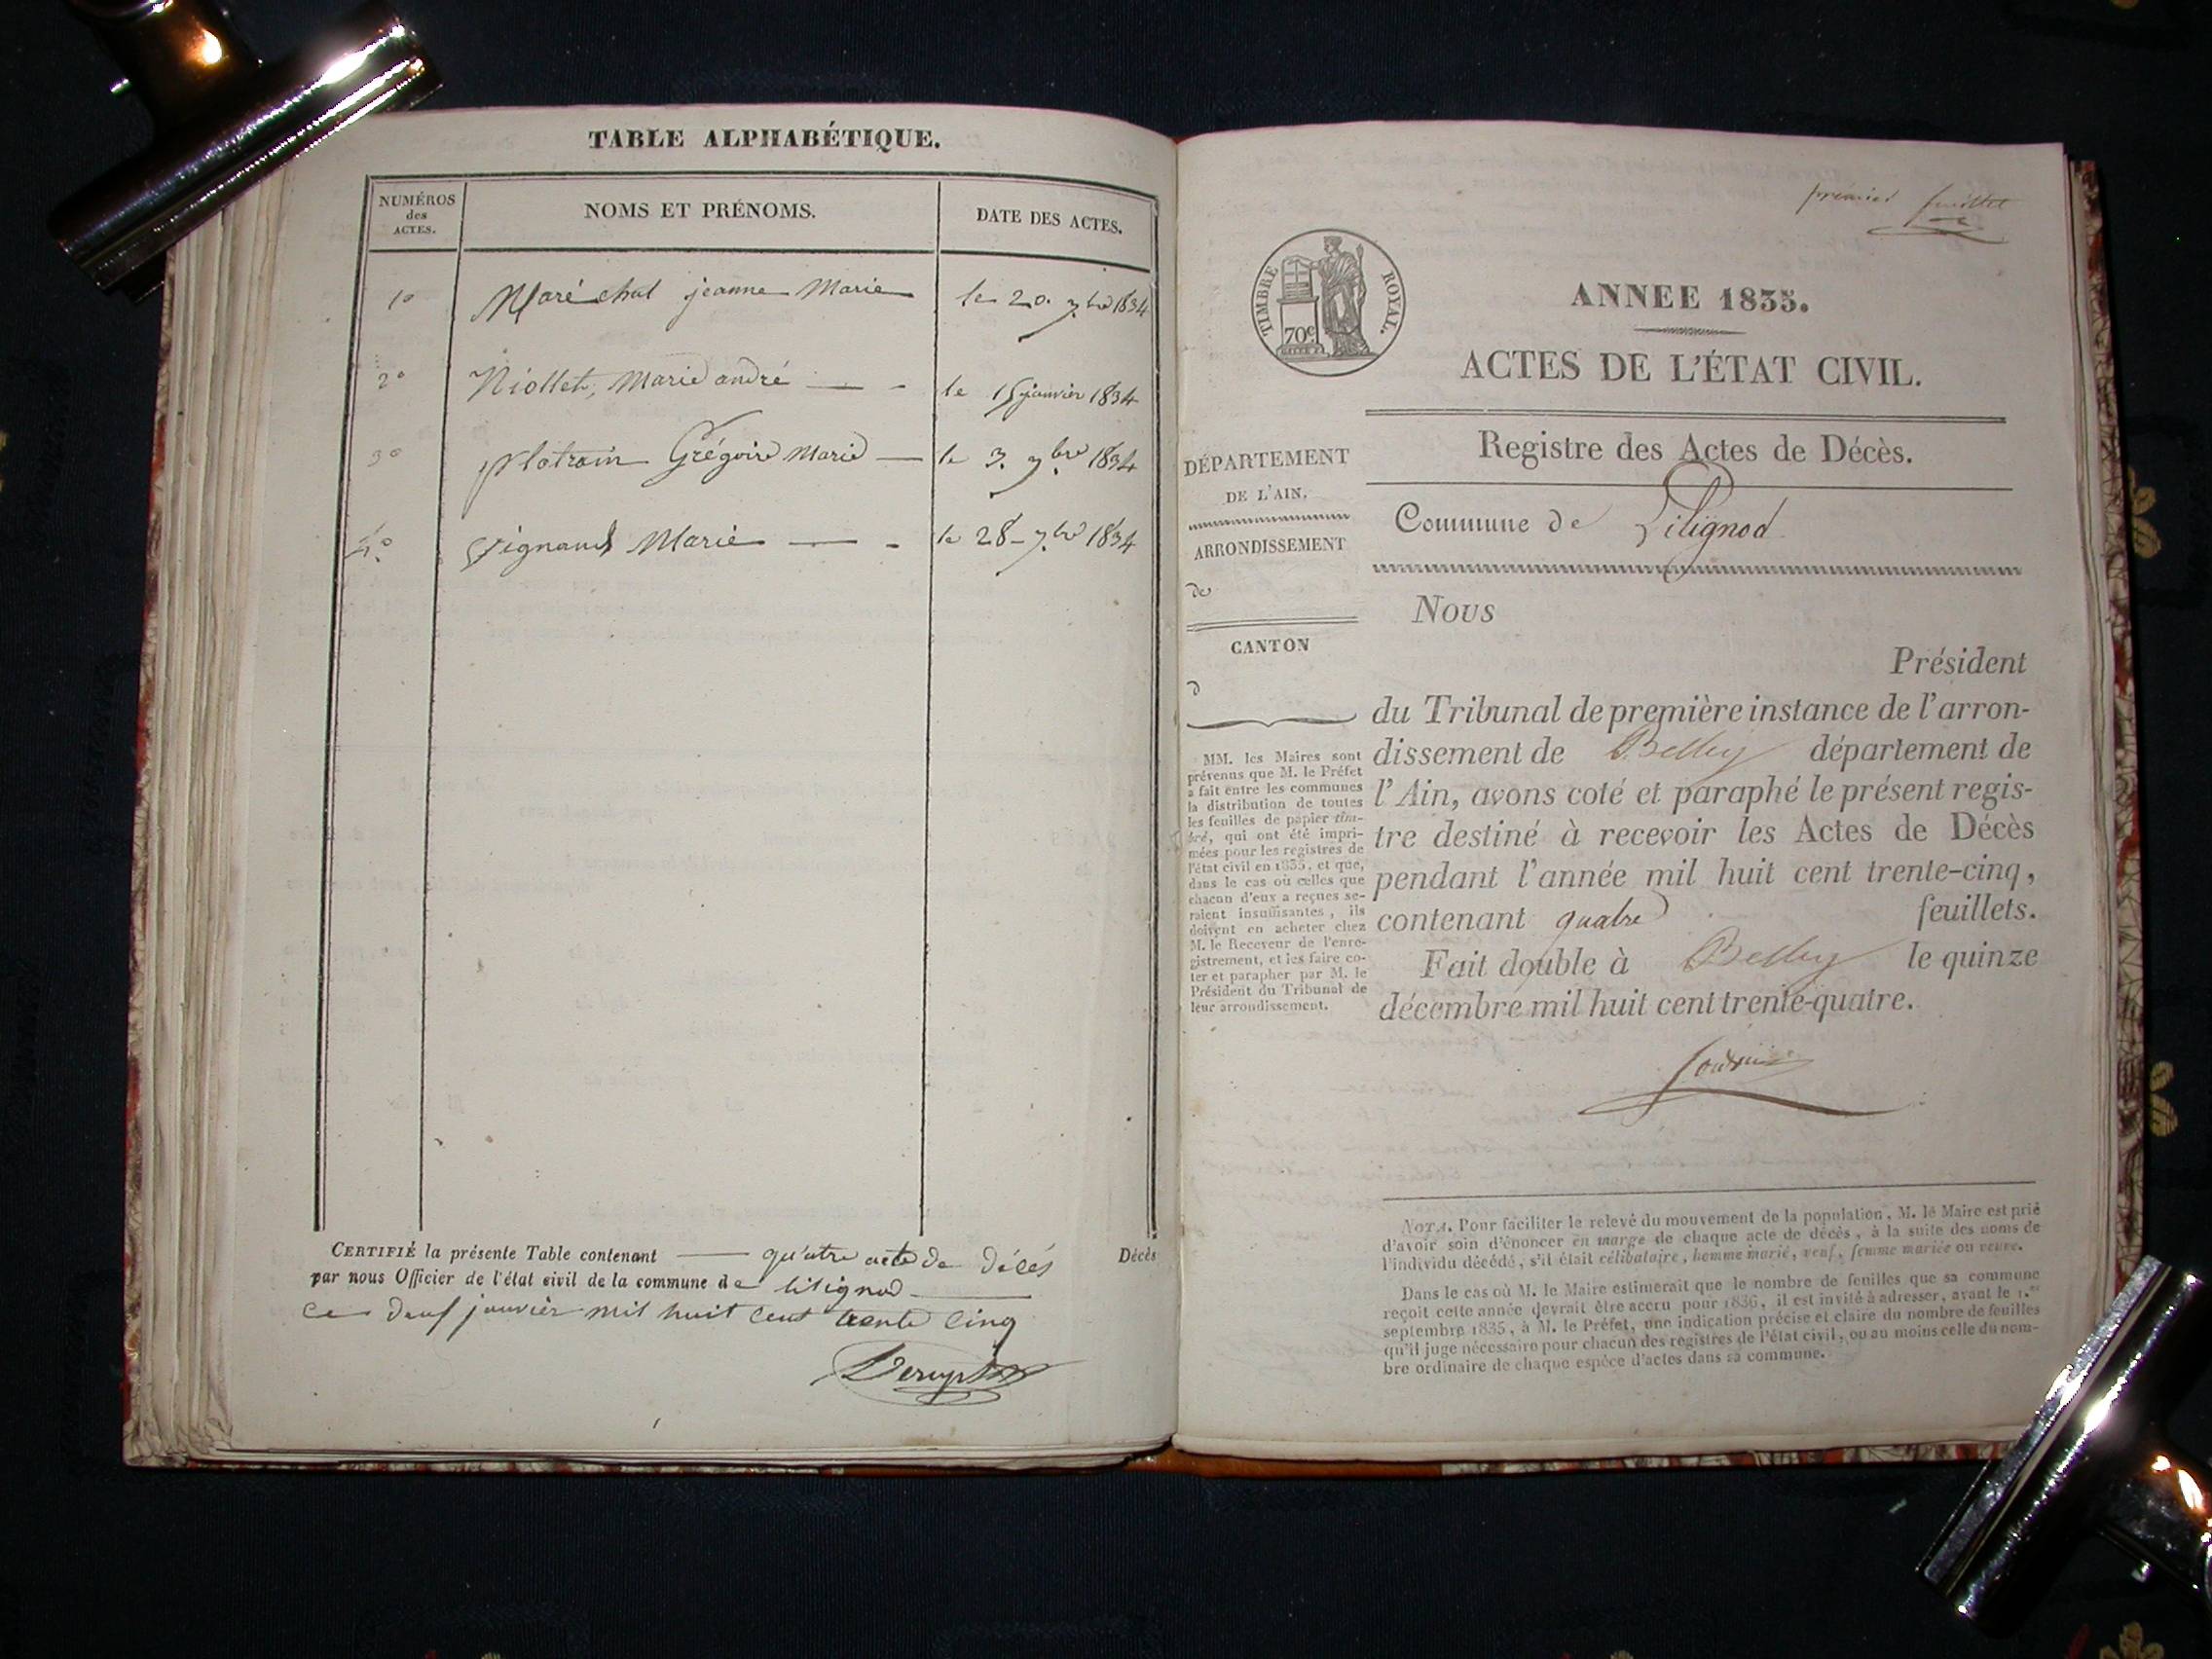 TABLE ALPHABÉTIQUE.
NUMÉROS
des
ACTES.
NOMS ET PRÉNOMS.
DATE DES ACTES.
1º Maréchal jeanne Marie le 20. 7.bre 1834
2º Niollet, Marie andré le 15 janvier 1834
3º Platrain Grégoire Marie le 3. 7.bre 1834
4º Vignand Marie le 28 7.bre 1834
CERTIFIÉ la présente Table contenant quatre acte de décés Décès
par nous Officier de l'état civil de la commune de lilignod
ce deuf janvier mil huit cent trente cinq
premier feuillet
TIMBRE ROYAL.
70c
ANNEE 1835.
ACTES DE L'ÉTAT CIVIL.
Registre des Actes de Décès.
Commune de Lilignod
DÉPARTEMENT
DE L'AIN.
ARRONDISSEMENT
de
CANTON
d
MM. les Maires sont
prévenus que M. le Préfet
a fait entre les communes
la distribution de toutes
les feuilles de papier tim-
bré, qui ont été impri-
mées pour les registres de
l'état civil en 1835, et que,
dans le cas où celles que
chacun d'eux a reçues se-
raient insuffisantes, ils
doivent en acheter chez
M. le Receveur de l'enre-
gistrement, et les faire co-
ter et parapher par M. le
Président du Tribunal de
leur arrondissement.
Nous
Président
du Tribunal de première instance de l'arron-
dissement de Belley département de
l'Ain, avons coté et paraphé le présent regis-
tre destiné à recevoir les Actes de Décès
pendant l'année mil huit cent trente-cinq,
contenant quatre feuillets.
Fait double à Belley le quinze
décembre mil huit cent trente-quatre.
NOTA. Pour faciliter le relevé du mouvement de la population, M. le Maire est prié
d'avoir soin d'énoncer en marge de chaque acte de décès, à la suite des noms de
l'individu décédé, s'il était célibataire, homme marié, veuf, femme mariée ou veuve.
Dans le cas où M. le Maire estimerait que le nombre de feuilles que sa commune
reçoit cette année devrait être accru pour 1836, il est invité à adresser, avant le 1.er
septembre 1835, à M. le Préfet, une indication précise et claire du nombre de feuilles
qu'il juge nécessaire pour chacun des registres de l'état civil, ou au moins celle du nom-
bre ordinaire de chaque espèce d'actes dans sa commune.